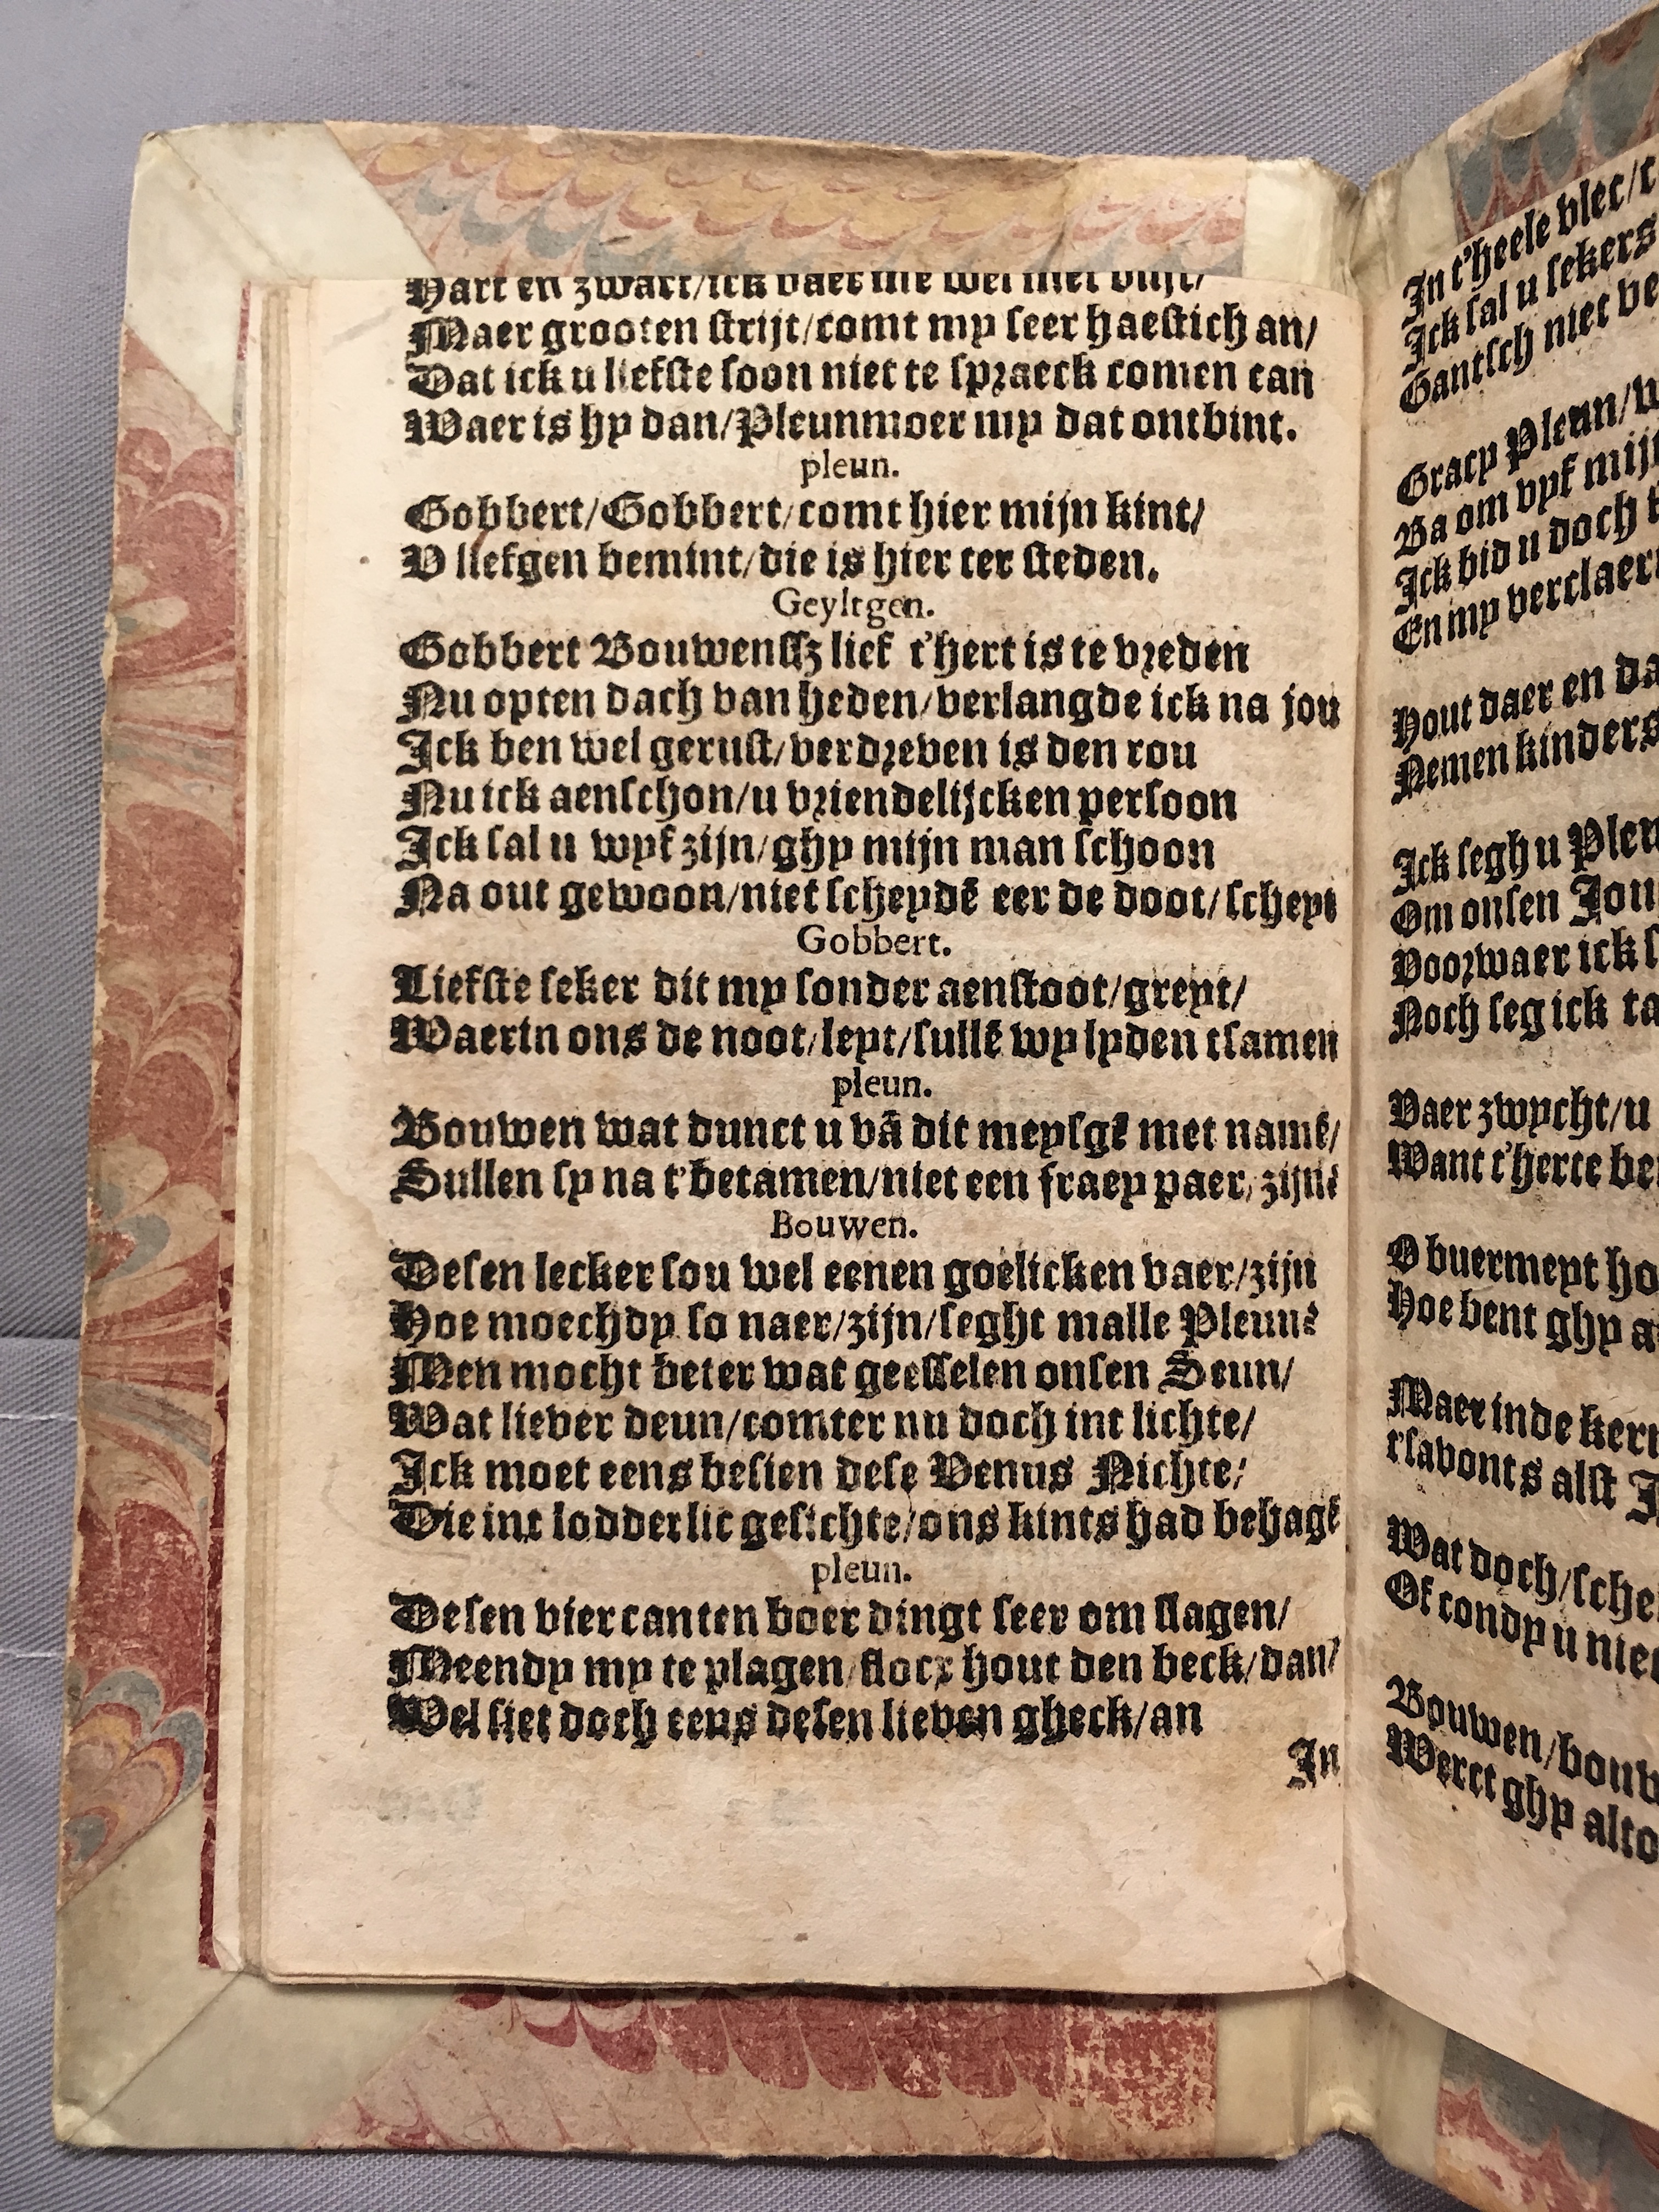 Hart en zwart/ick vaer me wel met vlijt/
Maer grooten strijt/comt my seer haestich an/
Dat ick u liefste soon niet te spraeck comen can
Waer is hy dan/Pleunmoer my dat ontbint.
pleun.
Gobbert/Gobbert/comt hier mijn kint/
V liefgen bemint/die is hier ter steden.
Geyltgen.
Gobbert Bouwenssz lief t'hert is te vreden
Nu opten dach van heden/verlangde ick na jou
Ick ben wel gerust/verdreven is den rou
Nu ick aenschon/u vriendelijcken persoon
Ick sal u wyf zijn/ghy mijn man schoon
Na out gewoon/niet scheydē eer de doot/scheyt
Gobbert.
Liefste seker dit my sonder aenstoot/greyt/
Waerin ons de noot/leyt/sullē wy lyden tsamen
pleun.
Bouwen wat dunct u vā dit meysgē met namē/
Sullen sy na t'betamen/niet een fraey paer/zijn?
Bouwen.
Desen lecker sou wel eenen goelicken vaer/zijn
Hoe moechdy so naer/zijn/seght malle Pleun?
Men mocht beter wat geesselen onsen Seun/
Wat liever deun/comter nu doch int lichte/
Ick moet eens besien dese Venus Nichte/
Die int lodderlic gesichte/ons kints had behagē
pleun.
Desen viercanten boer dingt seer om slagen/
Meendy my te plagen/flocx hout den beck/dan/
Wel siet doch eens desen lieven gheck/an
In
In t'heele vlec/
Ick sal u sekers
Gantsch niet be
Gracy Pleun/
Ba om vyf mij
Ick bid u doch
En my verclaer
Hout daer en da
Nemen kinders
Ick segh u Pleu
Om onsen Jon
Voorwaer ick s
Noch seg ick ta
Vaer zwycht/u
Want t'herte be
O buermeyt ho
Hoe bent ghy a
Maer inde ker
t'savonts alst J
Wat doch/sche
Of condy u nie
Bouwen/bouw
Werct ghy alto